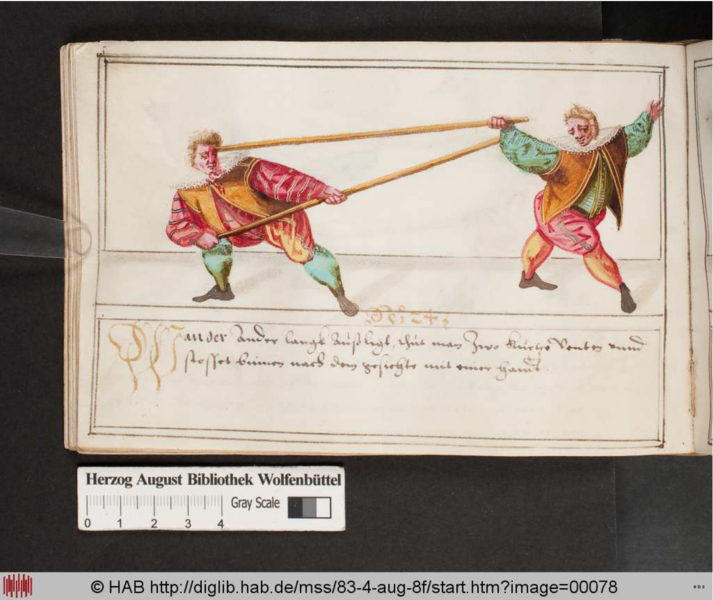 N: 24:
Wan der ander langk außligt, thut man zwo kurtze Venten vnnd
stosset binnen nach dem gesichte mit einer handt.
Herzog August Bibliothek Wolfenbüttel
Gray Scale
0 1 2 3 4
© HAB http://diglib.hab.de/mss/83-4-aug-8f/start.htm?image=00078